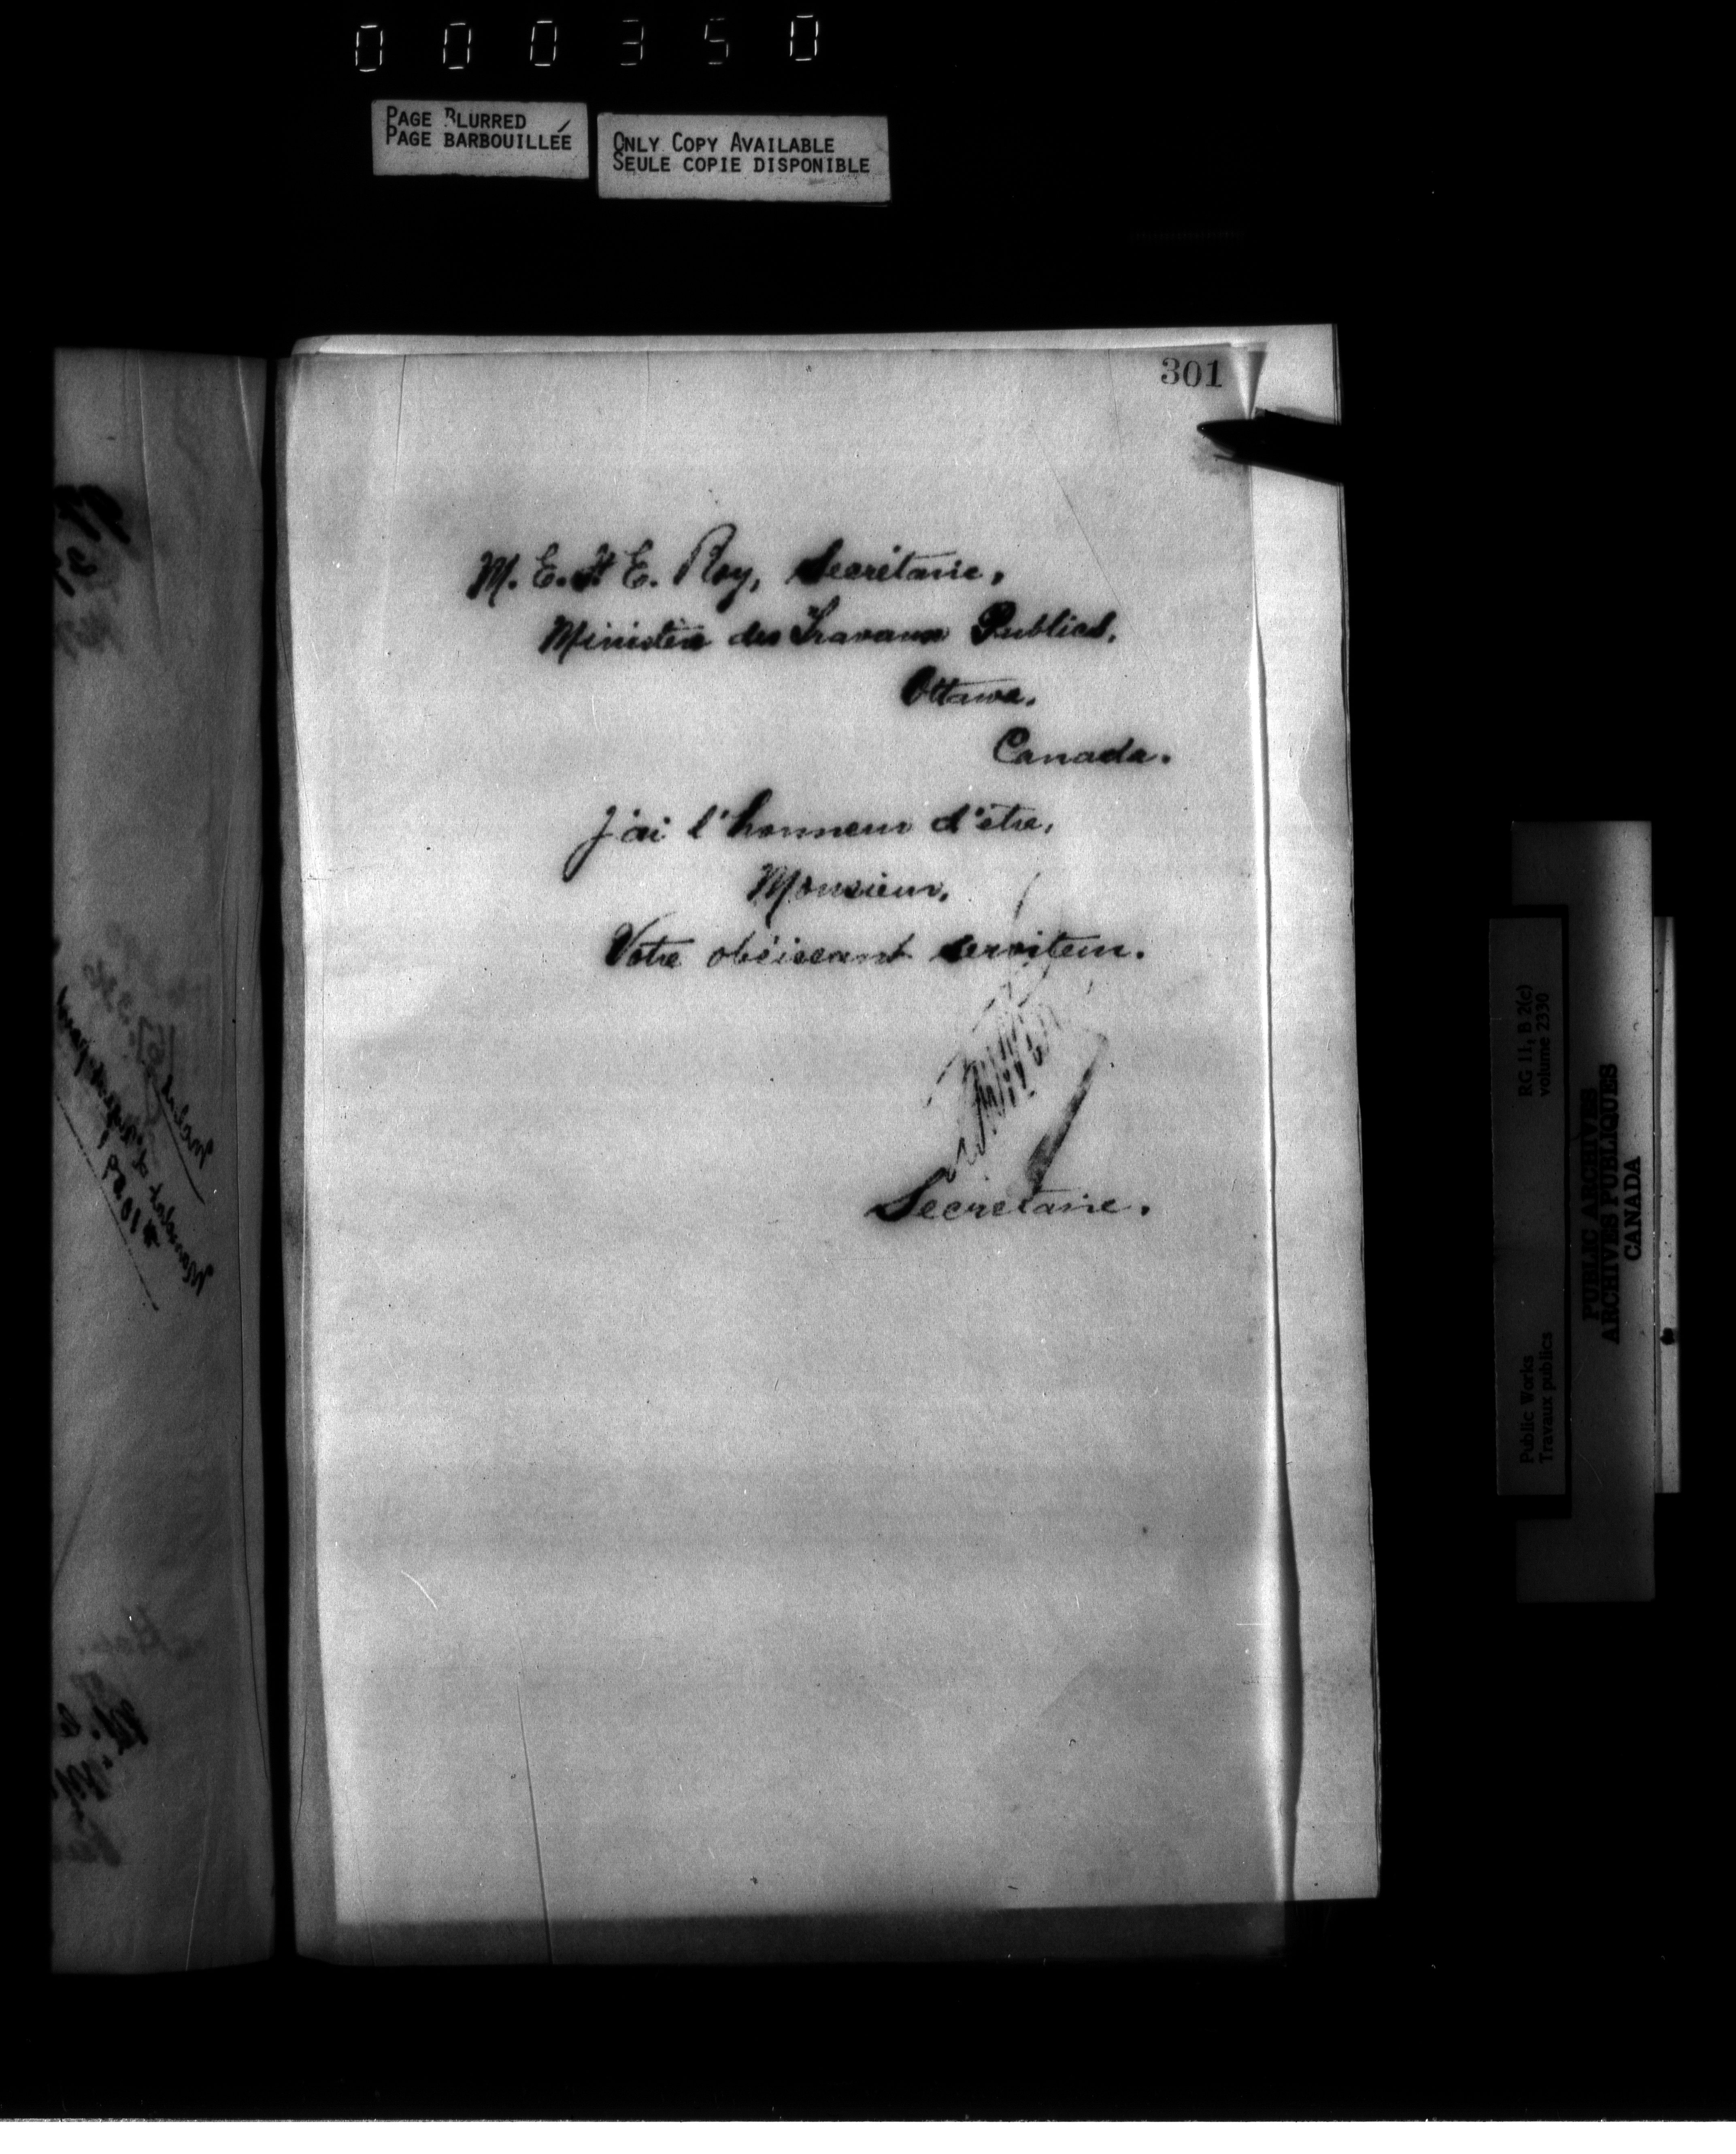 000350
PAGE BLURRED
PAGE BARBOUILLÉE
ONLY COPY AVAILABLE
SEULE COPIE DISPONIBLE
301
M. E. F. E. Roy, Secrétaire,
Ministère des Travaux Publics.
Ottawa.
Canada.
J'ai l'honneur d'être,
Monsieur,
Votre obéissant serviteur.
Secrétaire.
RG 11, B 2(c)
volume 2330
Public Works
Travaux publics
PUBLIC ARCHIVES
ARCHIVES PUBLIQUES
CANADA